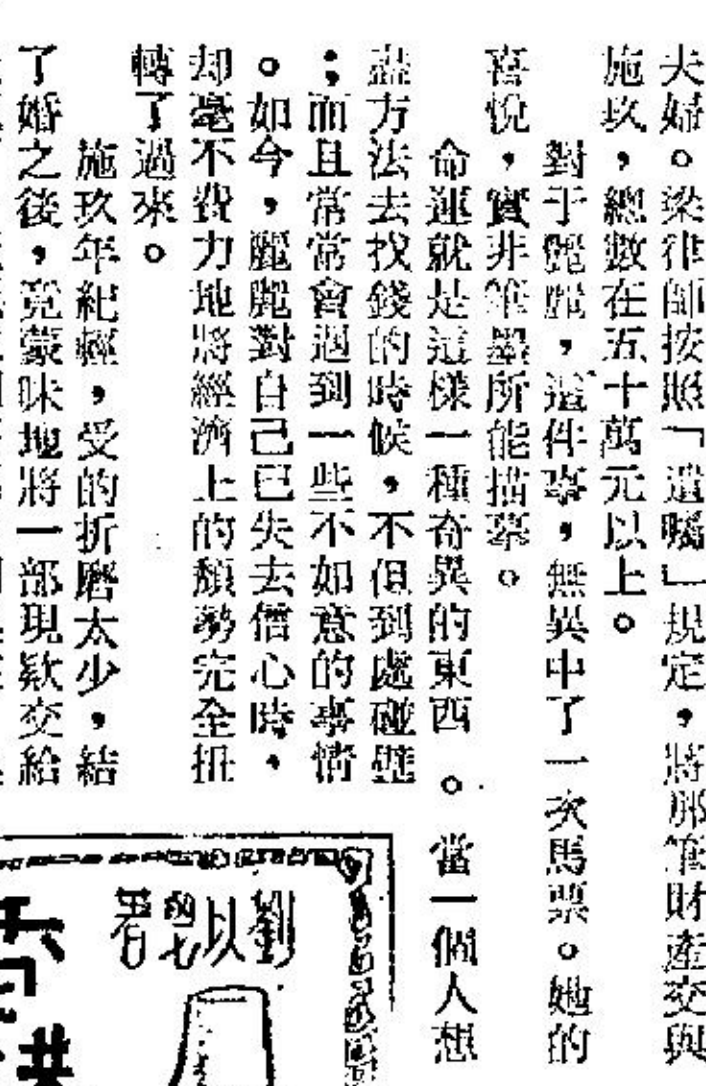 夫婦。梁律師按照「遺囑」規定，將那筆財產交與
施玖，總數在五十萬元以上。
對于麗麗，這件事，無異中了一次馬票。她的
喜悅，實非筆墨所能描摹。
命運就是這樣一種奇異的東西。當一個人想
盡方法去找錢的時候，不但到處碰壁
；而且常常會遇到一些不如意的事情
。如今，麗麗對自己已失去信心時，
却毫不費力地將經濟上的頹勢完全扭
轉了過來。
施玖年紀輕，受的折磨太少，結
了婚之後，竟蒙昧地將一部現欵交給
劉以鬯著